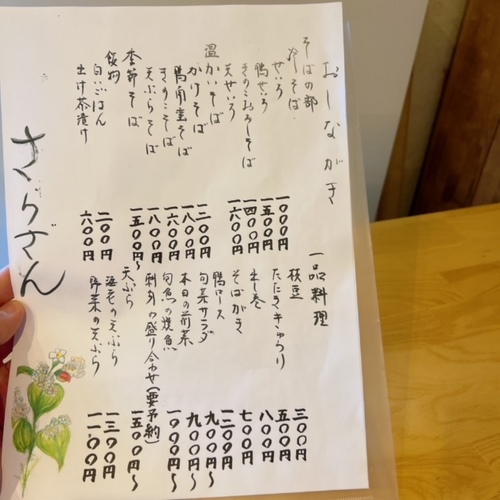 おしながき
そばの部
冷そば
せいろ 一〇〇〇円
鴨せいろ 一五〇〇円
きのこおろしそば 一四〇〇円
天せいろ 一六〇〇円
温かいそば
かけそば 一二〇〇円
鴨南蛮そば 一八〇〇円
きのこそば 一六〇〇円
天ぷらそば 一八〇〇円
季節そば 一五〇〇円〜
飯物
白いごはん 二〇〇円
出汁茶漬け 六〇〇円
一品料理
枝豆 三〇〇円
たたききゅうり 五〇〇円
出し巻 八〇〇円
そばがき 七〇〇円
鴨ロース 一二〇〇円
旬菜サラダ 九〇〇円〜
本日の前菜 九〇〇円〜
旬魚の焼魚 一〇〇〇円〜
刺身の盛り合わせ(要予約) 一五〇〇円〜
天ぷら
海老の天ぷら 一三〇〇円
野菜の天ぷら 一一〇〇円
さらざん